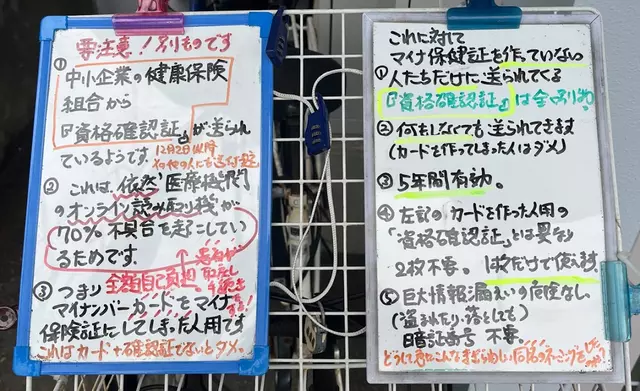 要注意！別ものです
① 中小企業の健康保険
組合から
『資格確認証』が送られ
ているようです。12月2日以降
その他の人にも送付予定
② これは、依然 医療機関
のオンライン読み取り機が
70% 不具合を起こしてい
るためです。
全額自己負担
③ つまり
マイナンバーカードをマイナ
保険証にしてしまった人用です
これはカード＋確認証でないとダメ。
これに対して
マイナ保健証を作っていない
① 人たちだけに送られてくる
『資格確認証』は全く別物
② 何もしなくても送られてきます
(カードを作ってしまった人はダメ)
③ 5年間有効。
④ 左記のカードを作った人用の
「資格確認証」とは異なり
2枚不要。1枚だけで使えます
⑤ 巨大情報漏えいの危険なし
(盗まれたり、落としても)
暗証番号 不要。
どうして君はこんなまぎらわしい同名のネーミングを